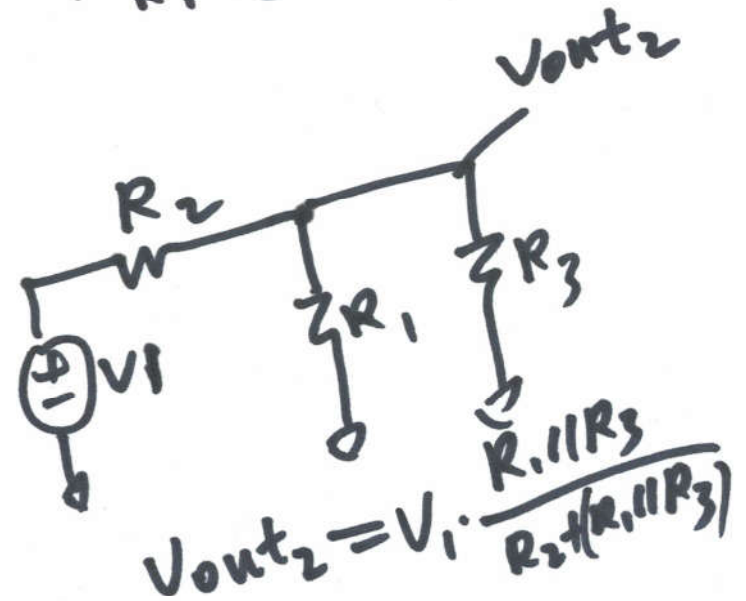 Vout₂
R₂
R₁
R₃
V1
+
−
Vout₂ = V₁ · R₁||R₃ / R₂+(R₁||R₃)